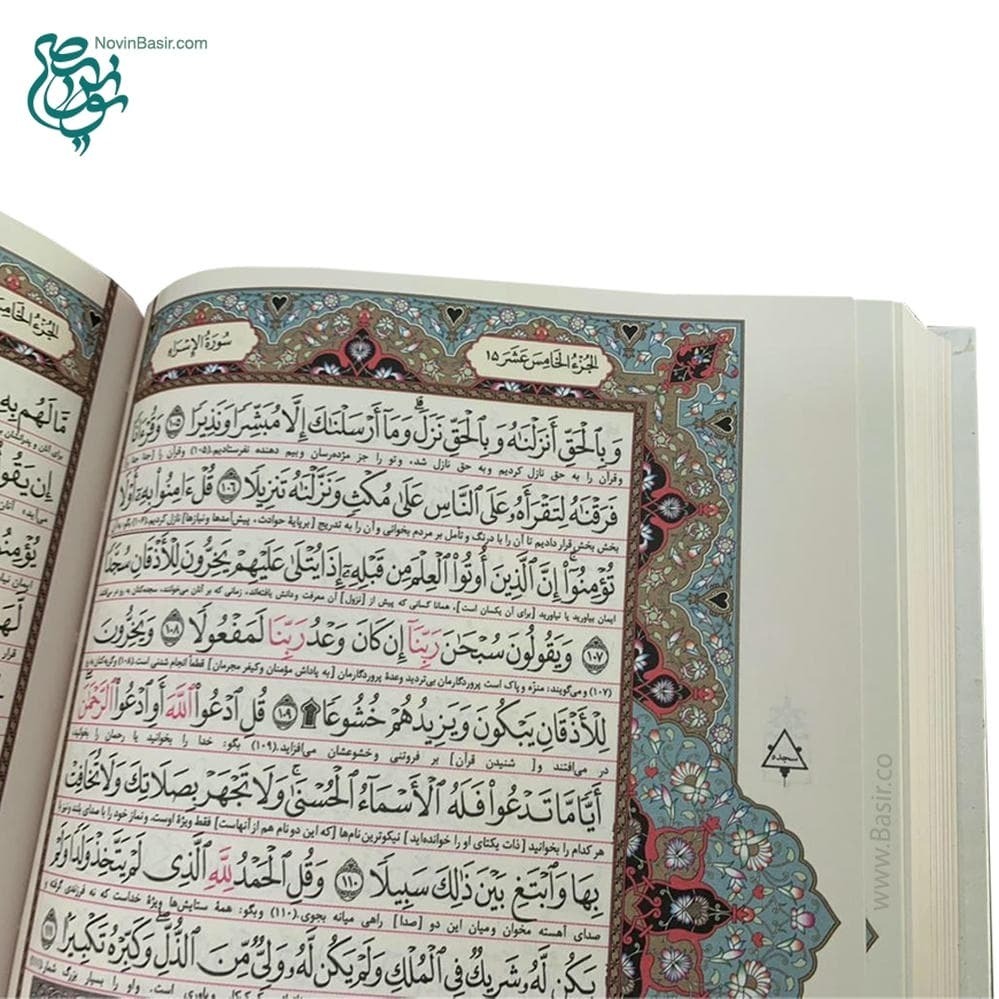 NovinBasir.com
نوین بصیر
سُورَةُ الإِسْرَاءِ
الجُزْءُ الخَامِسَ عَشَرَ ۱۵
وَبِٱلْحَقِّ أَنزَلْنَٰهُ وَبِٱلْحَقِّ نَزَلَۗ وَمَآ أَرْسَلْنَٰكَ إِلَّا مُبَشِّرًا وَنَذِيرًا ۱۰۵ وَقُرْءَانًا
وقرآن را به حق نازل کردیم وبه حق نازل شد، وتو را جز مژده‌رسان وبیم دهنده نفرستادیم.(۱۰۵) وقرآن را [جدا جدا و]
فَرَقْنَٰهُ لِتَقْرَأَهُۥ عَلَى ٱلنَّاسِ عَلَىٰ مُكْثٍ وَنَزَّلْنَٰهُ تَنزِيلًا ۱۰۶ قُلْ ءَامِنُوا۟ بِهِۦٓ أَوْ لَا
بخش بخش قرار دادیم تا آن را با درنگ و تأمل بر مردم بخوانی و آن را به تدریج [برپایهٔ حوادث، پیش‌آمدها ونیازها] نازل کردیم.(۱۰۶) بگو: به آن
تُؤْمِنُوٓا۟ۚ إِنَّ ٱلَّذِينَ أُوتُوا۟ ٱلْعِلْمَ مِن قَبْلِهِۦٓ إِذَا يُتْلَىٰ عَلَيْهِمْ يَخِرُّونَ لِلْأَذْقَانِ سُجَّدًا
ایمان بیاورید یا نیاورید [برای آن یکسان است]، همانا کسانی که پیش از [نزول] آن معرفت ودانش یافته‌اند، زمانی که بر آنان می‌خوانند، سجده‌کنان به رو در می‌افتند.
۱۰۷ وَيَقُولُونَ سُبْحَٰنَ رَبِّنَآ إِن كَانَ وَعْدُ رَبِّنَا لَمَفْعُولًا ۱۰۸ وَيَخِرُّونَ
(۱۰۷) ومی‌گویند: منزّه وپاک است پروردگارمان بی‌تردید وعدهٔ پروردگارمان [به پاداش مؤمنان وکیفر مجرمان] قطعاً انجام شدنی است.(۱۰۸) وگریه‌کنان به رو
لِلْأَذْقَانِ يَبْكُونَ وَيَزِيدُهُمْ خُشُوعًا ۩ ۱۰۹ قُلِ ٱدْعُوا۟ ٱللَّهَ أَوِ ٱدْعُوا۟ ٱلرَّحْمَٰنَۖ
در می‌افتند و[ شنیدن قرآن] بر فروتنی وخشوعشان می‌افزاید.(۱۰۹) بگو: خدا را بخوانید یا رحمان را بخوانید،
أَيًّا مَّا تَدْعُوا۟ فَلَهُ ٱلْأَسْمَآءُ ٱلْحُسْنَىٰۚ وَلَا تَجْهَرْ بِصَلَاتِكَ وَلَا تُخَافِتْ
هر کدام را بخوانید [ذات یکتای او را خوانده‌اید] نیکوترین نام‌ها [که این دو نام هم از آنهاست] فقط ویژهٔ اوست. ونماز خود را با صدای بلند ونیز با
بِهَا وَٱبْتَغِ بَيْنَ ذَٰلِكَ سَبِيلًا ۱۱۰ وَقُلِ ٱلْحَمْدُ لِلَّهِ ٱلَّذِى لَمْ يَتَّخِذْ وَلَدًا وَلَمْ
صدای آهسته مخوان ومیان این دو [صدا] راهی میانه بجوی.(۱۱۰) وبگو: همهٔ ستایش‌ها ویژهٔ خداست که نه فرزندی گرفته و
يَكُن لَّهُۥ شَرِيكٌ فِى ٱلْمُلْكِ وَلَمْ يَكُن لَّهُۥ وَلِىٌّ مِّنَ ٱلذُّلِّۖ وَكَبِّرْهُ تَكْبِيرًۢا ۱۱۱
ویاوری است. واو را بسیار بزرگ شمار.(۱۱۱)
سجده
www.Basir.co
الجُزْءُ الخَامِسَ
مَّا لَهُم بِهِ
إِن يَقُولُ
تُؤْمِنُوا
لَّهَا